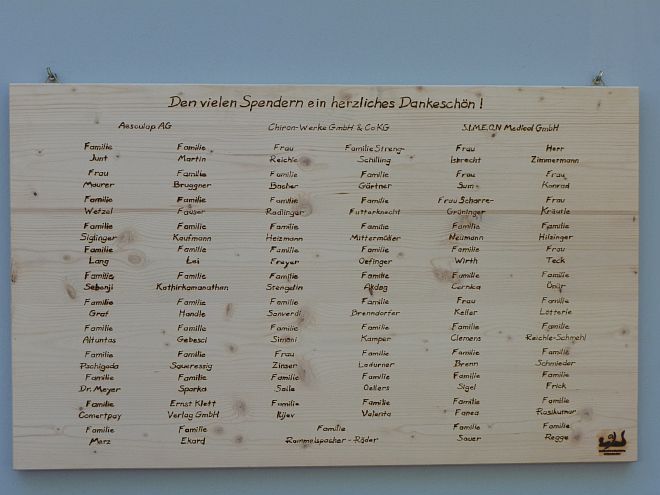 Den vielen Spendern ein herzliches Dankeschön!
Aesculap AG Chiron-Werke GmbH & Co KG S.I.M.E.O.N Medical GmbH
Familie Familie Frau Familie Streng- Frau Herr
Junt Martin Reichle Schilling Isbrecht Zimmermann
Frau Familie Familie Familie Frau Frau
Maurer Bruggner Bacher Gärtner Sum Konrad
Familie Familie Familie Familie Frau Scharre- Frau
Wetzel Fauser Radlinger Futterknecht Grüninger Kräutle
Familie Familie Familie Familie Familie Familie
Siglinger Kaufmann Heizmann Mittermüller Neumann Hilzinger
Familie Familie Familie Familie Familie Frau
Lang Lai Freyer Oefinger Wirth Teck
Familie Familie Familie Familie Familie Familie
Sebenji Kathirkamanathan Stengelin Akdag Cernica Önür
Familie Familie Familie Familie Frau Familie
Graf Handle Sanverdi Brenndorfer Keller Lotterie
Familie Familie Familie Familie Familie Familie
Altuntas Gebesci Simoni Kamper Clemens Reichle-Schmehl
Familie Familie Frau Familie Familie Familie
Pschigoda Saueressig Zinser Ladurner Brenn Schmieder
Familie Familie Familie Familie Familie Familie
Dr. Meyer Sparka Saile Oellers Sigel Frick
Familie Ernst Klett Familie Familie Familie Familie
Comertpay Verlag GmbH Iljev Valenta Fanea Rasikumar
Familie Familie Familie Familie Familie
Merz Ekard Rommelspacher-Räder Sauer Regge